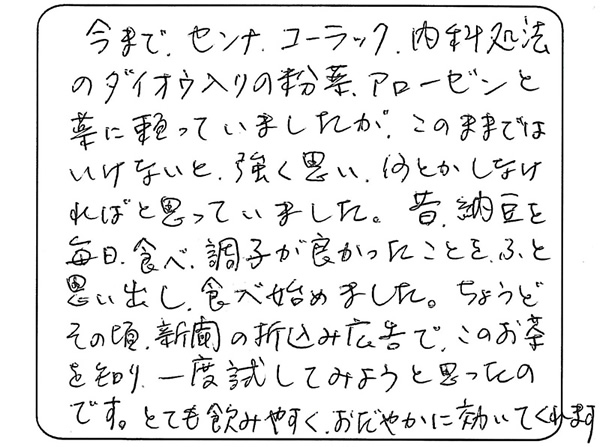 今まで、センナ、コーラック、内科処法
のダイオウ入りの粉薬、アローゼンと
薬に頼っていましたが、このままでは
いけないと、強く思い、何とかしなけ
ればと思っていました。昔、納豆を
毎日、食べ、調子が良かったことを、ふと
思い出し、食べ始めました。ちょうど
その頃、新聞の折込み広告で、このお茶
を知り、一度試してみようと思ったの
です。とても飲みやすく、おだやかに効いてくれます